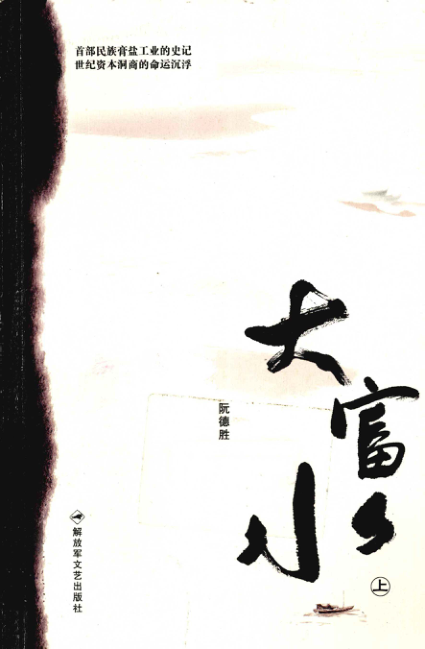 首部民族膏盐工业的史记
世纪资本洞商的命运沉浮
大富水
阮德胜
上
解放军文艺出版社